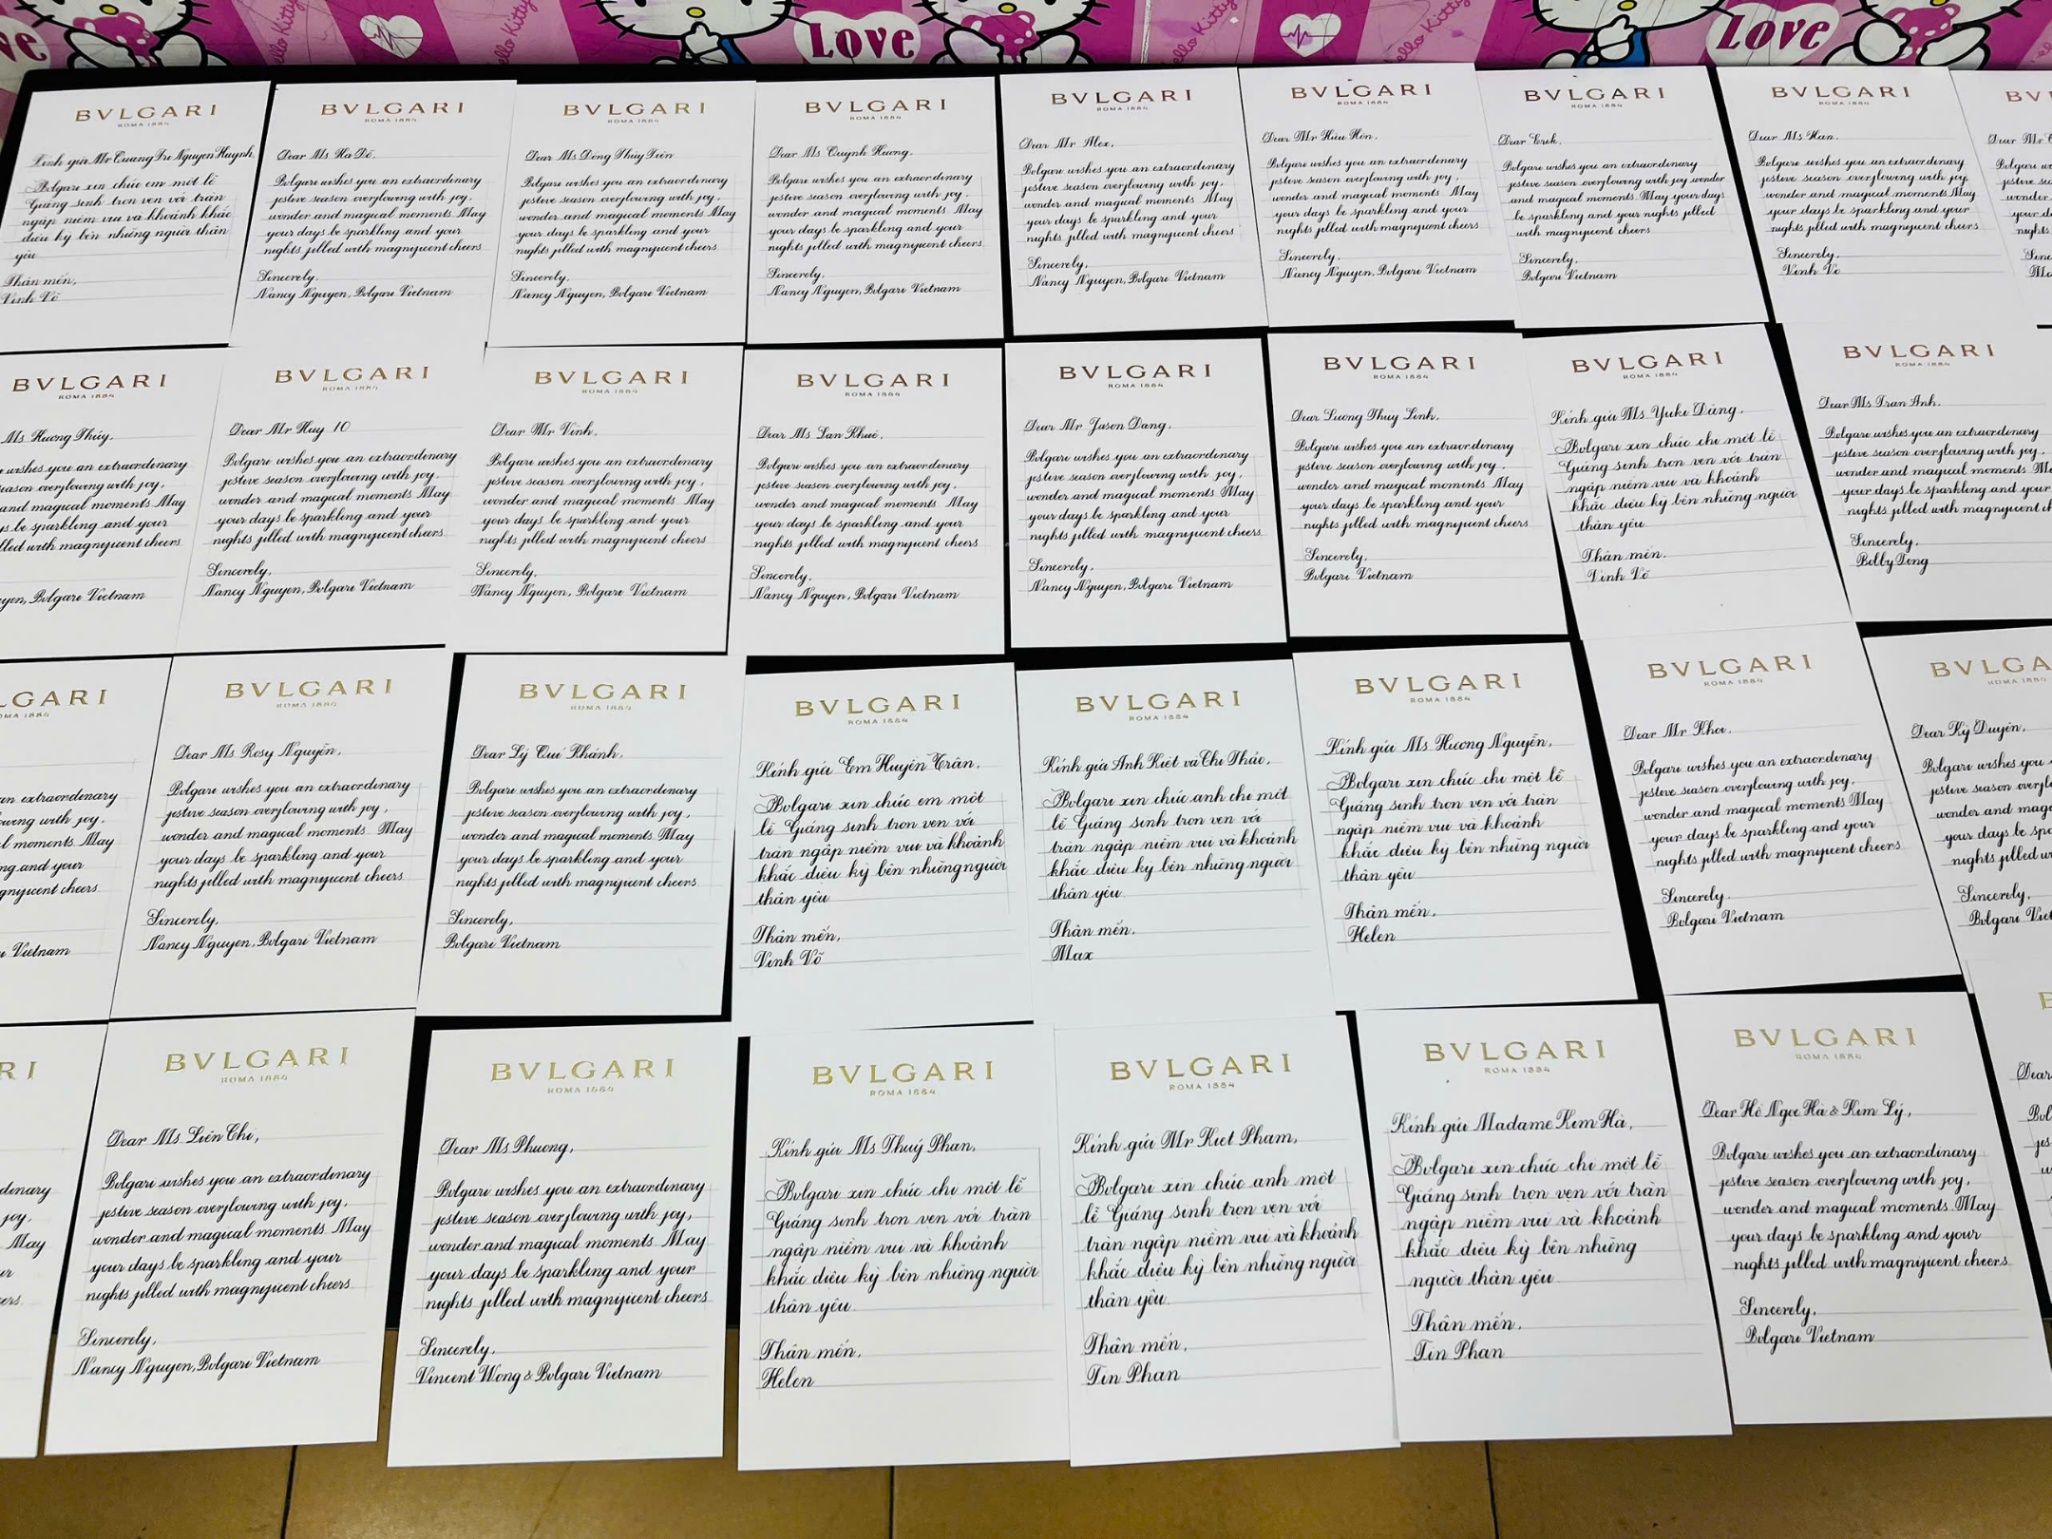 ve
Love
Hello Kitty
Love
BVLGARI
ROMA 1884
Kính gửi Mr Quang Tri Nguyen Huynh,
Bvlgari xin chúc em một lễ
Giáng sinh trọn vẹn với tràn
ngập niềm vui và khoảnh khắc
diệu kỳ bên những người thân
yêu
Thân mến,
Vinh Võ
BVLGARI
ROMA 1884
Dear Ms Hà Đỗ,
Bvlgari wishes you an extraordinary
festive season overflowing with joy,
wonder and magical moments. May
your days be sparkling and your
nights filled with magnificent cheers.
Sincerely,
Nancy Nguyen, Bvlgari Vietnam
BVLGARI
ROMA 1884
Dear Ms Đồng Thủy Tiên
Bvlgari wishes you an extraordinary
festive season overflowing with joy,
wonder and magical moments. May
your days be sparkling and your
nights filled with magnificent cheers
Sincerely,
Nancy Nguyen, Bvlgari Vietnam
BVLGARI
ROMA 1884
Dear Ms Quỳnh Hương,
Bvlgari wishes you an extraordinary
festive season overflowing with joy,
wonder and magical moments. May
your days be sparkling and your
nights filled with magnificent cheers
Sincerely,
Nancy Nguyen, Bvlgari Vietnam
BVLGARI
ROMA 1884
Dear Mr Alex,
Bvlgari wishes you an extraordinary
festive season overflowing with joy,
wonder and magical moments. May
your days be sparkling and your
nights filled with magnificent cheers
Sincerely,
Nancy Nguyen, Bvlgari Vietnam
BVLGARI
ROMA 1884
Dear Mr Hữu Hôn,
Bvlgari wishes you an extraordinary
festive season overflowing with joy,
wonder and magical moments. May
your days be sparkling and your
nights filled with magnificent cheers
Sincerely,
Nancy Nguyen, Bvlgari Vietnam
BVLGARI
ROMA 1884
Dear Erik,
Bvlgari wishes you an extraordinary
festive season overflowing with joy, wonder
and magical moments. May your days
be sparkling and your nights filled
with magnificent cheers
Sincerely,
Bvlgari Vietnam
BVLGARI
ROMA 1884
Dear Ms Han,
Bvlgari wishes you an extraordinary
festive season overflowing with joy,
wonder and magical moments. May
your days be sparkling and your
nights filled with magnificent cheers
Sincerely,
Vinh Võ
BVLGARI
ROMA 1884
Ms Hương Thủy,
wishes you an extraordinary
season overflowing with joy,
and magical moments May
be sparkling and your
filled with magnificent cheers
Bvlgari Vietnam
BVLGARI
ROMA 1884
Dear Mr Huy 10
Bvlgari wishes you an extraordinary
festive season overflowing with joy,
wonder and magical moments May
your days be sparkling and your
nights filled with magnificent cheers
Sincerely,
Nancy Nguyen, Bvlgari Vietnam
BVLGARI
ROMA 1884
Dear Mr Vinh,
Bvlgari wishes you an extraordinary
festive season overflowing with joy,
wonder and magical moments May
your days be sparkling and your
nights filled with magnificent cheers
Sincerely,
Nancy Nguyen, Bvlgari Vietnam
BVLGARI
ROMA 1884
Dear Ms Lan Khuê,
Bvlgari wishes you an extraordinary
festive season overflowing with joy,
wonder and magical moments May
your days be sparkling and your
nights filled with magnificent cheers
Sincerely,
Nancy Nguyen, Bvlgari Vietnam
BVLGARI
ROMA 1884
Dear Mr Jason Dang,
Bvlgari wishes you an extraordinary
festive season overflowing with joy,
wonder and magical moments May
your days be sparkling and your
nights filled with magnificent cheers
Sincerely,
Nancy Nguyen, Bvlgari Vietnam
BVLGARI
ROMA 1884
Dear Lương Thùy Linh,
Bvlgari wishes you an extraordinary
festive season overflowing with joy,
wonder and magical moments May
your days be sparkling and your
nights filled with magnificent cheers
Sincerely,
Bvlgari Vietnam
BVLGARI
ROMA 1884
Kính gửi Ms Yuki Đăng,
Bvlgari xin chúc chị một lễ
Giáng sinh trọn vẹn với tràn
ngập niềm vui và khoảnh
khắc diệu kỳ bên những người
thân yêu
Thân mến,
Vinh Võ
BVLGARI
ROMA 1884
Dear Ms Tran Anh,
Bvlgari wishes you an extraordinary
festive season overflowing with joy,
wonder and magical moments
your days be sparkling and your
nights filled with magnificent
Sincerely,
Bobby Tong
LGARI
ROMA 1884
an extraordinary
with joy,
moments May
and your
magnificent cheers
Vietnam
BVLGARI
ROMA 1884
Dear Ms Rosy Nguyễn,
Bvlgari wishes you an extraordinary
festive season overflowing with joy,
wonder and magical moments May
your days be sparkling and your
nights filled with magnificent cheers
Sincerely,
Nancy Nguyen, Bvlgari Vietnam
BVLGARI
ROMA 1884
Dear Lý Quí Khánh,
Bvlgari wishes you an extraordinary
festive season overflowing with joy,
wonder and magical moments May
your days be sparkling and your
nights filled with magnificent cheers
Sincerely,
Bvlgari Vietnam
BVLGARI
ROMA 1884
Kính gửi Em Huyền Trân,
Bvlgari xin chúc em một
lễ Giáng sinh trọn vẹn với
tràn ngập niềm vui và khoảnh
khắc diệu kỳ bên những người
thân yêu
Thân mến,
Vinh Võ
BVLGARI
ROMA 1884
Kính gửi Anh Kiệt và Chị Thảo,
Bvlgari xin chúc anh chị một
lễ Giáng sinh trọn vẹn với
tràn ngập niềm vui và khoảnh
khắc diệu kỳ bên những người
thân yêu
Thân mến,
Max
BVLGARI
ROMA 1884
Kính gửi Ms Hương Nguyễn,
Bvlgari xin chúc chị một lễ
Giáng sinh trọn vẹn với tràn
ngập niềm vui và khoảnh
khắc diệu kỳ bên những người
thân yêu
Thân mến,
Helen
BVLGARI
ROMA 1884
Dear Mr Khoi,
Bvlgari wishes you an extraordinary
festive season overflowing with joy,
wonder and magical moments May
your days be sparkling and your
nights filled with magnificent cheers
Sincerely,
Bvlgari Vietnam
BVLGA
ROMA 1884
Dear Kỳ Duyên,
Bvlgari wishes you
festive season
wonder and
your days be
nights filled
Sincerely,
Bvlgari
RI
joy,
May
BVLGARI
ROMA 1884
Dear Ms Liên Chi,
Bvlgari wishes you an extraordinary
festive season overflowing with joy,
wonder and magical moments May
your days be sparkling and your
nights filled with magnificent cheers
Sincerely,
Nancy Nguyen, Bvlgari Vietnam
BVLGARI
ROMA 1884
Dear Ms Phuong,
Bvlgari wishes you an extraordinary
festive season overflowing with joy,
wonder and magical moments May
your days be sparkling and your
nights filled with magnificent cheers
Sincerely,
Vincent Wong & Bvlgari Vietnam
BVLGARI
ROMA 1884
Kính gửi Ms Thuý Phan,
Bvlgari xin chúc chị một lễ
Giáng sinh trọn vẹn với tràn
ngập niềm vui và khoảnh
khắc diệu kỳ bên những người
thân yêu
Thân mến,
Helen
BVLGARI
ROMA 1884
Kính gửi Mr Kiet Pham,
Bvlgari xin chúc anh một
lễ Giáng sinh trọn vẹn với
tràn ngập niềm vui và khoảnh
khắc diệu kỳ bên những người
thân yêu
Thân mến,
Tin Phan
BVLGARI
ROMA 1884
Kính gửi Madame Kim Hà,
Bvlgari xin chúc chị một lễ
Giáng sinh trọn vẹn với tràn
ngập niềm vui và khoảnh
khắc diệu kỳ bên những
người thân yêu
Thân mến,
Tin Phan
BVLGARI
ROMA 1884
Dear Hồ Ngọc Hà & Kim Lý,
Bvlgari wishes you an extraordinary
festive season overflowing with joy,
wonder and magical moments May
your days be sparkling and your
nights filled with magnificent cheers
Sincerely,
Bvlgari Vietnam
Dear